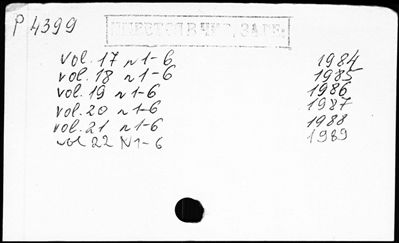 P 4399
vol. 17 n 1-6 1984
vol. 18 n 1-6 1985
vol. 19 n 1-6 1986
vol. 20 n 1-6 1987
vol. 21 n 1-6 1988
vol 22 N 1-6 1989